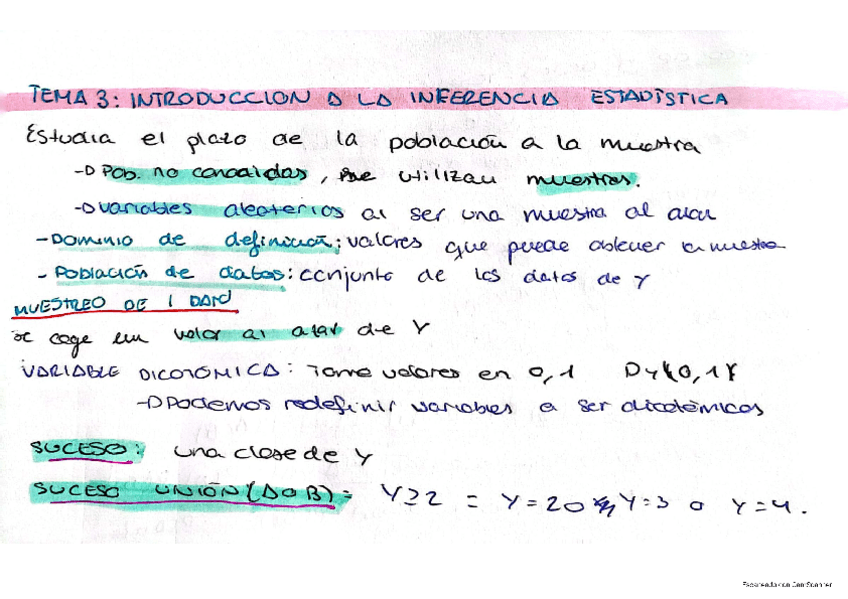 TEMA 3: INTRODUCCION A LA INFERENCIA ESTADÍSTICA
Estudia el plazo de la población a la muestra
-D Pob. no conocidas, se utilizan muestras.
-D variables aleatorios al ser una muestra al azar
- Dominio de definición: valores que puede obtener la muestra
- Población de datos: conjunto de los datos de Y
MUESTREO DE 1 DATO
se coge un valor al azar de Y
VARIABLE DICOTÓMICA: Tome valores en 0,1 Dy{0,1}
-D Podemos redefinir variables a ser dicotómicas
SUCESO: una clase de Y
SUCESO UNIÓN (A O B) = Y≥2 = Y=2 o Y=3 o Y=4.
Escaneado con CamScanner